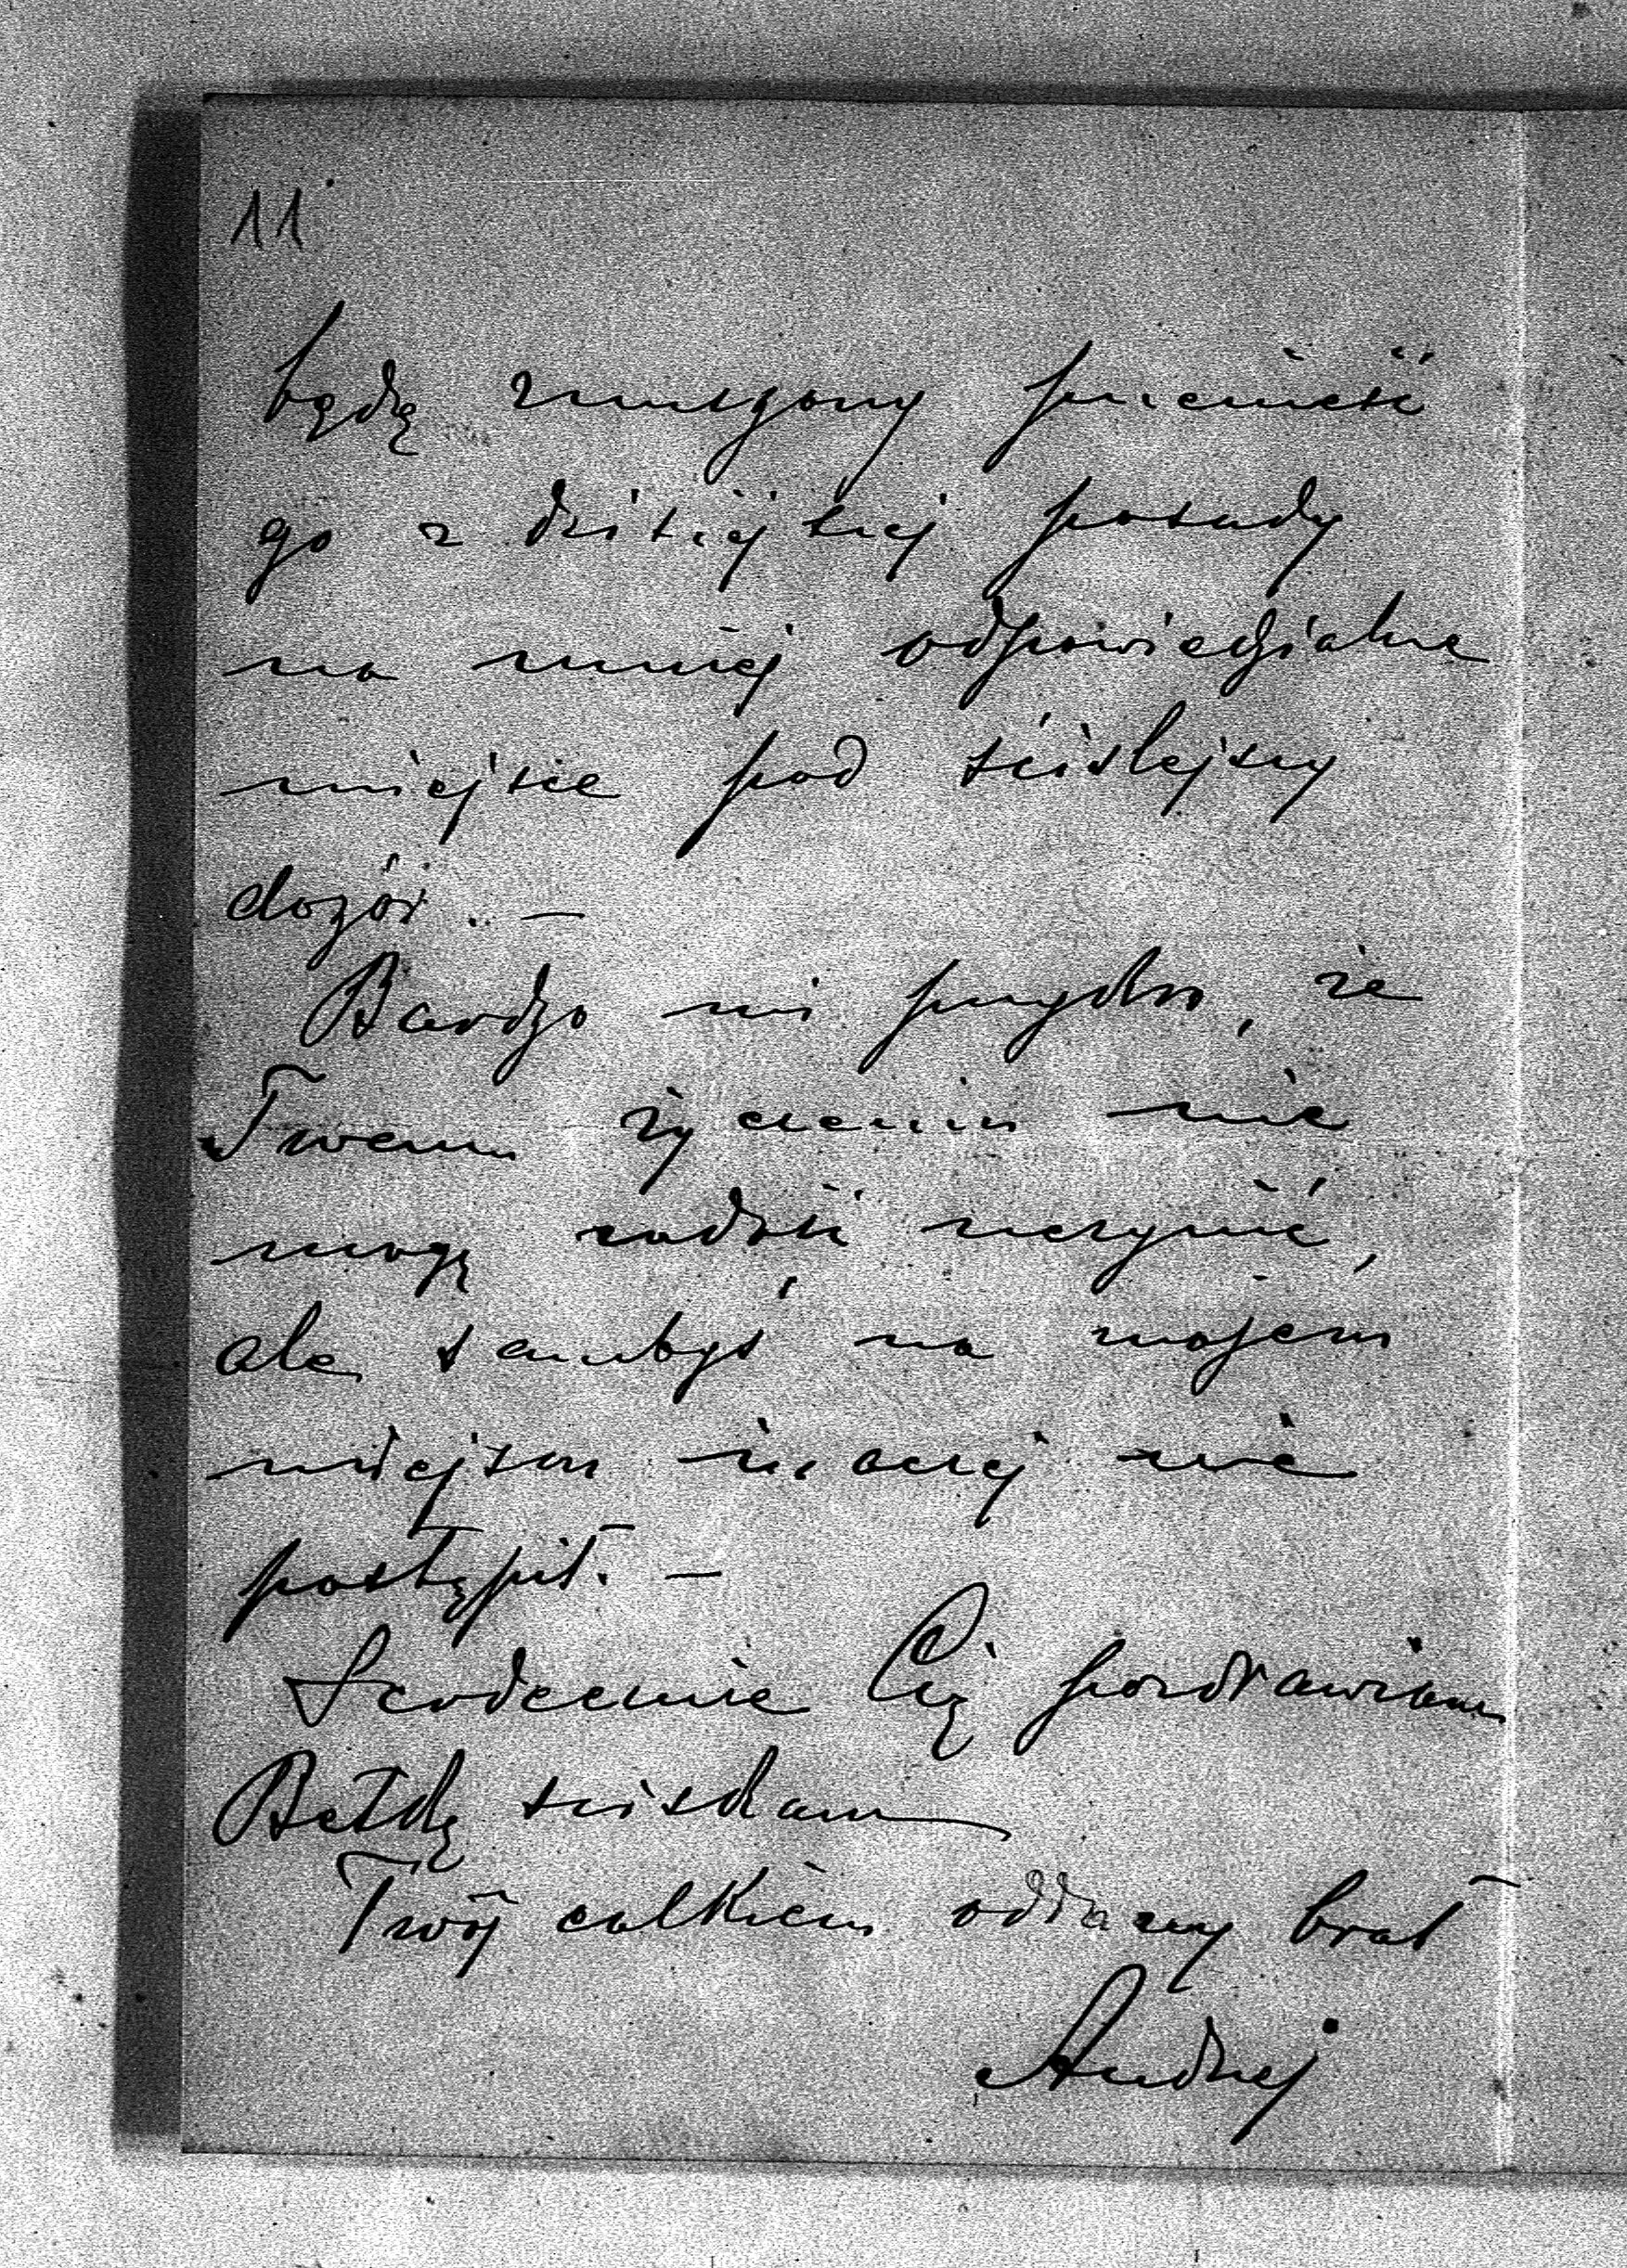 11
będę zmuszony przenieść
go z dzisiejszej posady
na mniej odpowiedzialne
miejsce pod ściślejszy
dozór. —
Bardzo mi przykro, że
Twemu życzeniu nie
mogę zadość uczynić,
ale sambyś na mojem
miejscu inaczej nie
postąpił. —
Serdecznie Cię pozdrawiam
Betkę ściskam
Twój całkiem oddany brat
Andrzej